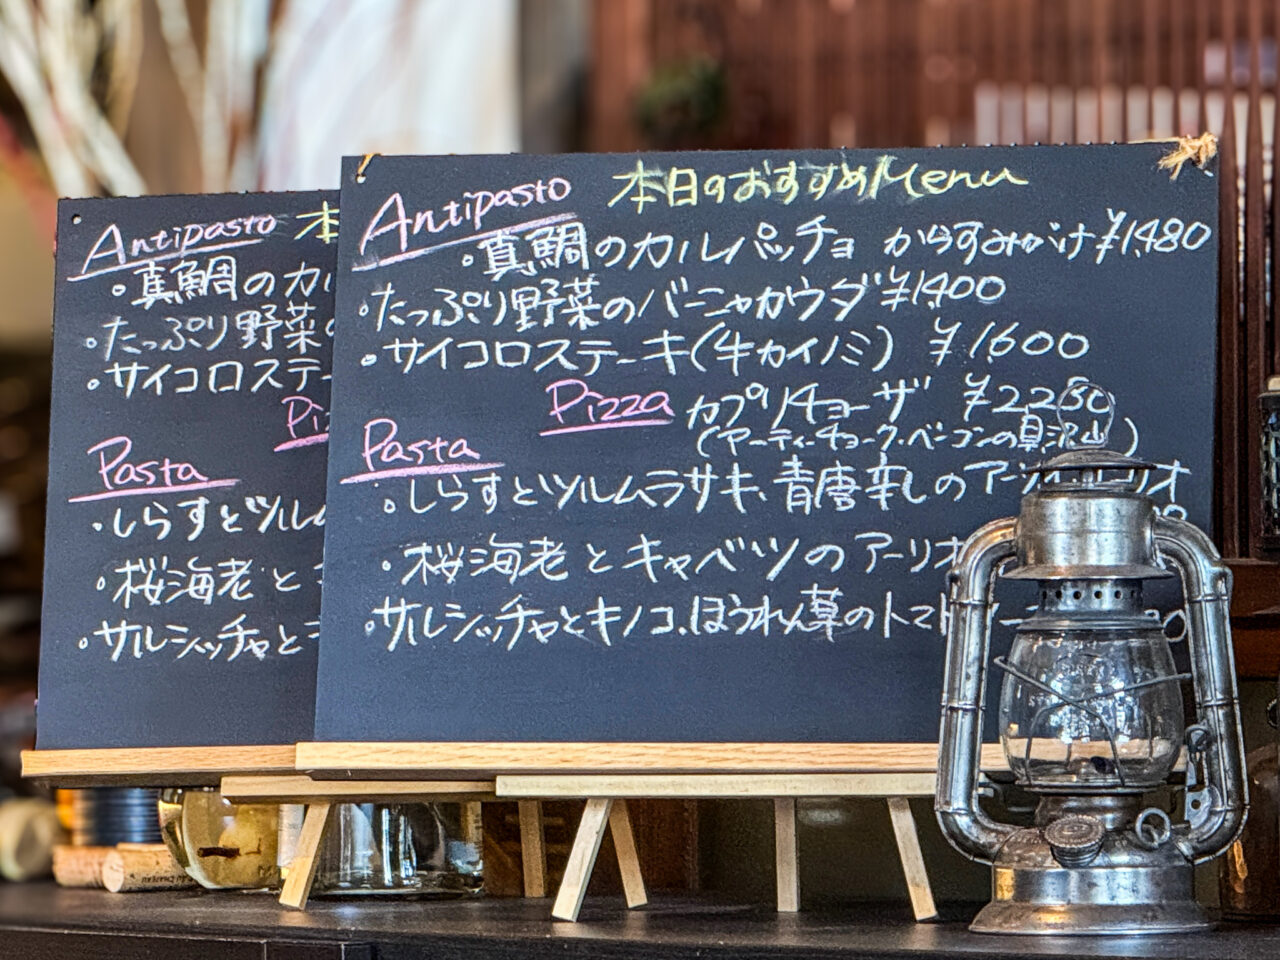 Antipasto 本
・真鯛のカル
・たっぷり野菜
・サイコロステー
Pi
Pasta
・しらすとツルム
・桜海老と
・サルシッチャと
Antipasto 本日のおすすめMenu
・真鯛のカルパッチョ からすみがけ ¥1,480
・たっぷり野菜のバーニャカウダ ¥1,400
・サイコロステーキ(牛カイノミ) ¥1,600
Pizza カプリチョーザ
(アーティーチョーク・ベーコンの具沢山)
Pasta
・しらすとツルムラサキ、青唐辛しの
・桜海老とキャベツのアーリオ
・サルシッチャとキノコ、ほうれん草のトマト